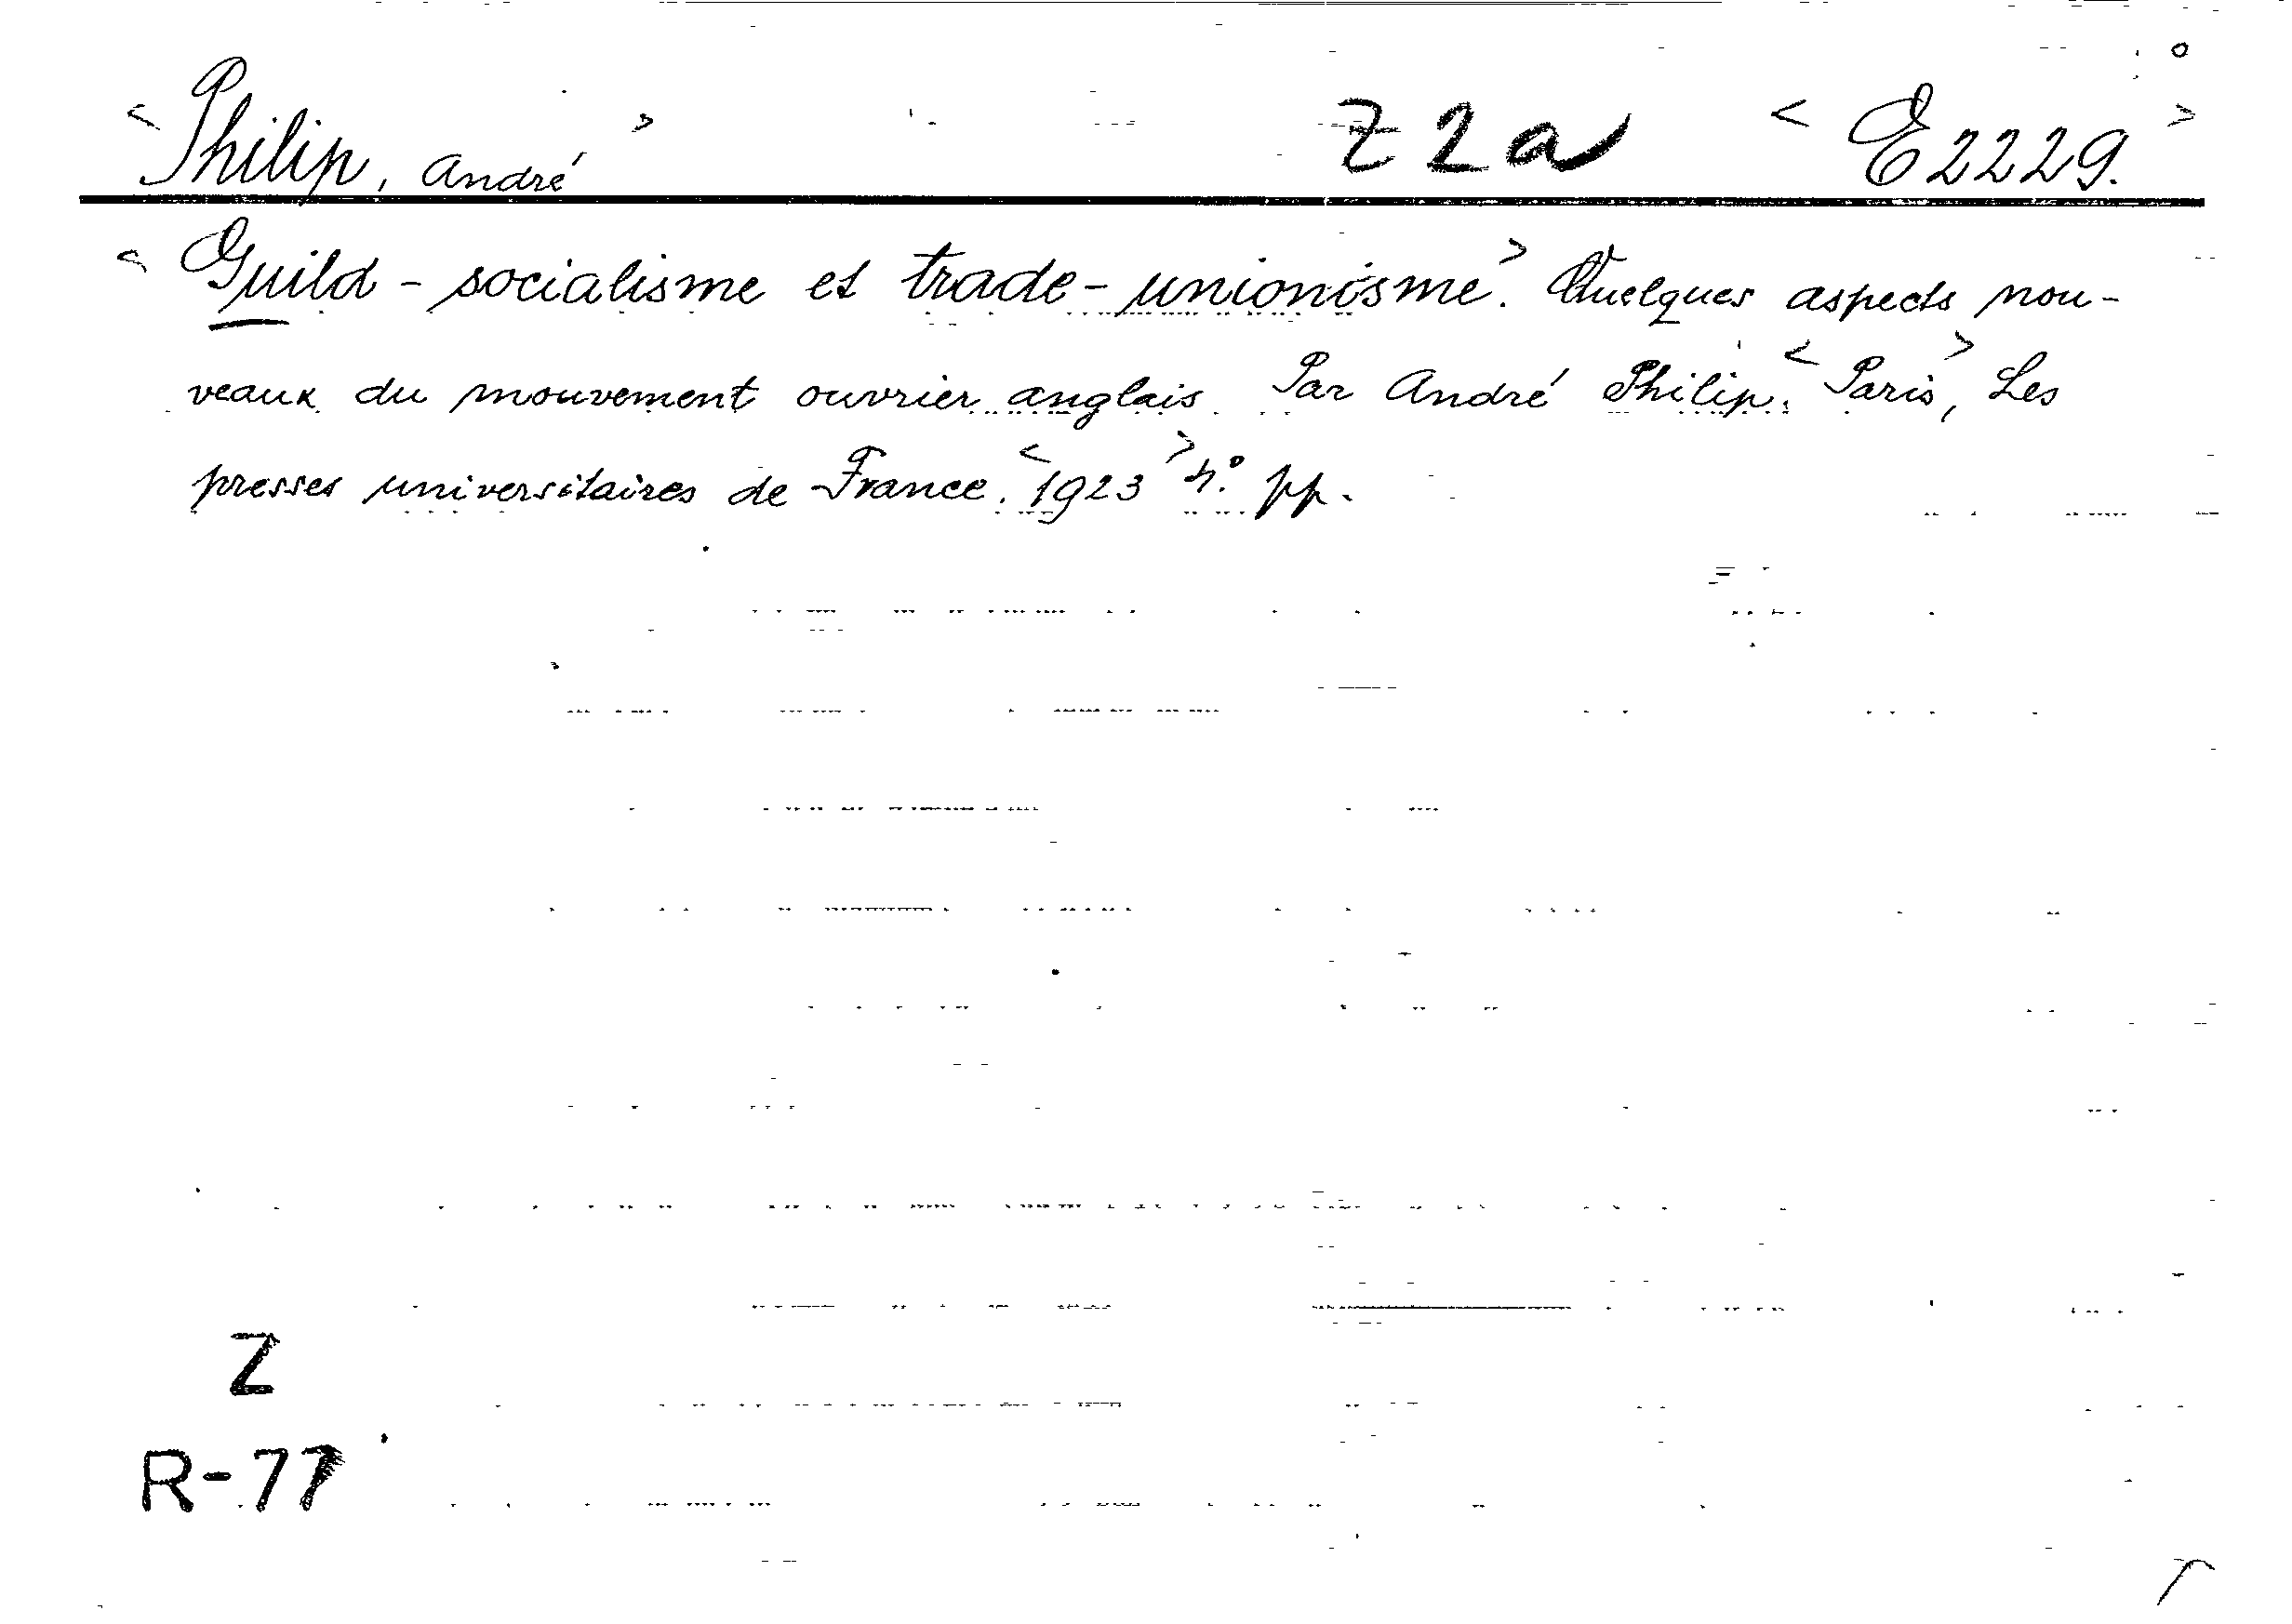 < Philip, André > Z2a < E2229. >
< Guild-socialisme et trade-unionisme >. Quelques aspects nou-
veaux du mouvement ouvrier anglais. Par André Philip. < Paris >, Les
presses universitaires de France. < 1923 > 4.° pp.
Z
R-77